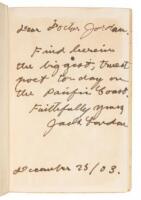 Dear Doctor Jordan:
Find herein
the biggest, truest
poet to-day on
the Pacific Coast.
Faithfully yours
Jack London
December 23/03.